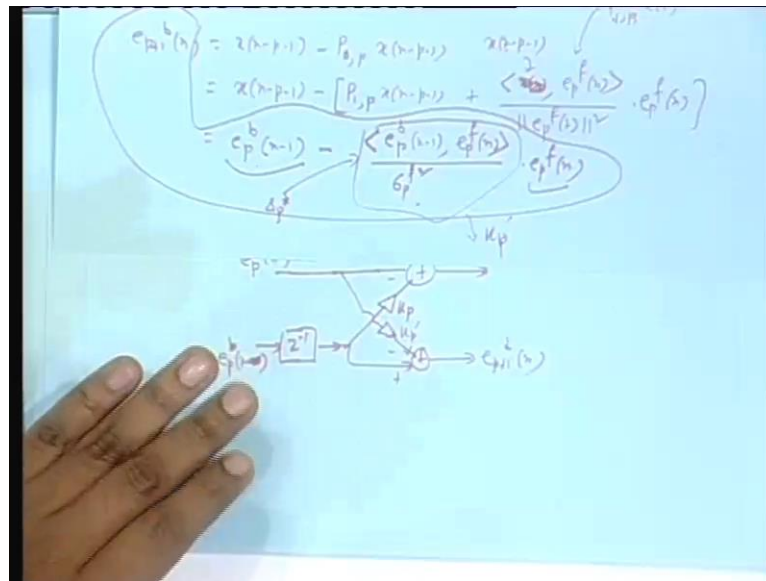 e_{p+1}^b(n) = x(n-p-1) - P_{0,p} x(n-p-1)
= x(n-p-1) - [P_{1,p} x(n-p-1) + <x(n-p-1), e_p^f(n)> / ||e_p^f(n)||^2 . e_p^f(n)]
= e_p^b(n-1) - <e_p^b(n-1), e_p^f(n)> / σ_p^{f2} . e_p^f(n)
Δ_p^*
K_p'
- +
K_p
K_p'
e_p^b(n) z^{-1} - + e_{p+1}^b(n)
+